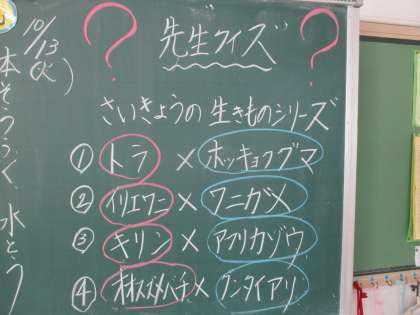 10/13
(火)
本そうつうく、水とう
? 先生クイズ ?
さいきょうの生きものシリーズ
① トラ × ホッキョクグマ
② イリエワニ × ワニガメ
③ キリン × アフリカゾウ
④ オオスズメバチ × グンタイアリ